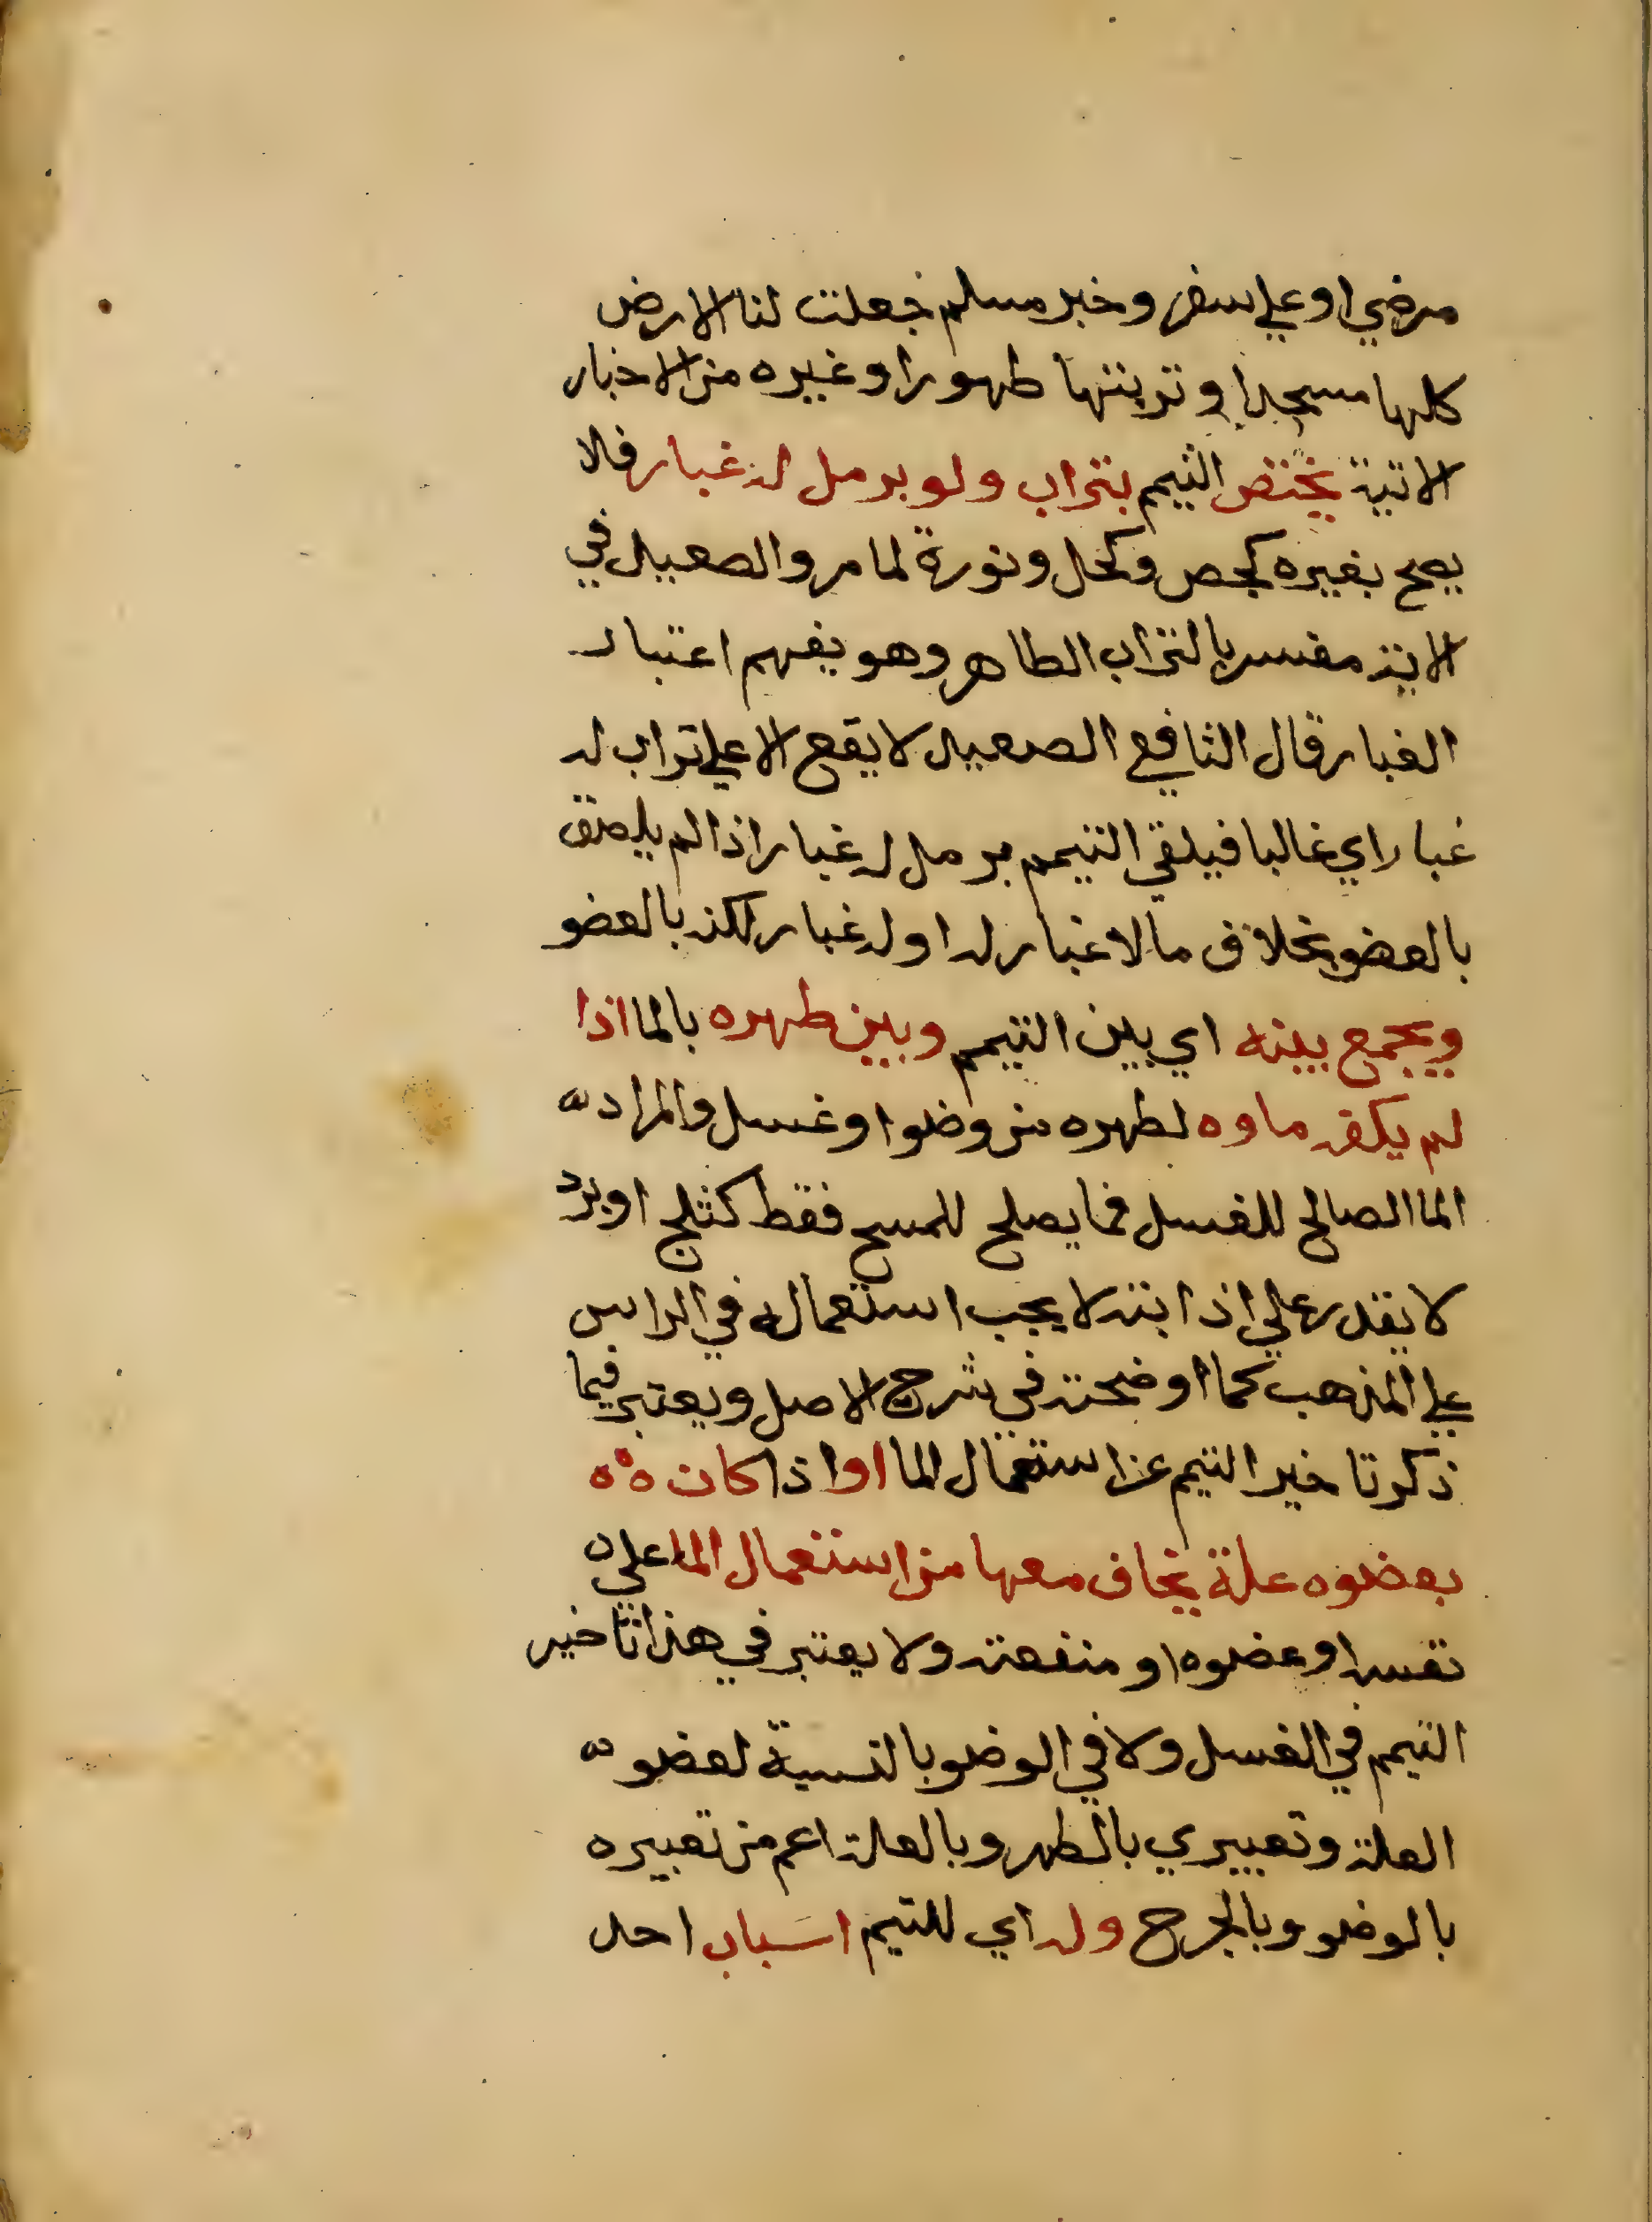 مرضي او علي سفر وخبر مسلم جعلت لنا الارض
كلها مسجدا وتربتها طهورا وغيره من الاخبار
الاتية يختص التيمم بتراب ولو برمل له غبار فلا
يصح بغيره كجص وكحل ونورة لما مر والصعيد في
الاية مفسر بالتراب الطاهر وهو يفهم اعتبار
الغبار قال الشافعي الصعيد لا يقع الا علي تراب له
غبار اي غالبا فيلقي التيمم برمل له غبار اذا لم يلصق
بالعضو بخلاف ما لا غبار له او له غبار لكنه بالعضو
ويجمع بينه اي بين التيمم وبين طهره بالما اذا
لم يكفه ماوه لطهره من وضوا وغسل والمراد
الما الصالح للغسل فما يصلح للمسح فقط كثلج او برد
لا يقدر علي اذابته لا يجب استعماله في الراس
علي المذهب كما اوضحته في شرح الاصل ويعتبر فيما
ذكر تاخير التيمم عن استعمال الما او اذا كان ه ه
بعضوه علة يخاف معها من استعمال الما علي ه
نفسه او عضوه او منفعته ولا يعتبر في هذا تاخير
التيمم في الغسل ولا في الوضو بالنسبة لعضو
العلة وتعبيري بالطهر وبالعلة اعم من تعبيره
بالوضو وبالجرح وله اي للتيمم اسباب احد